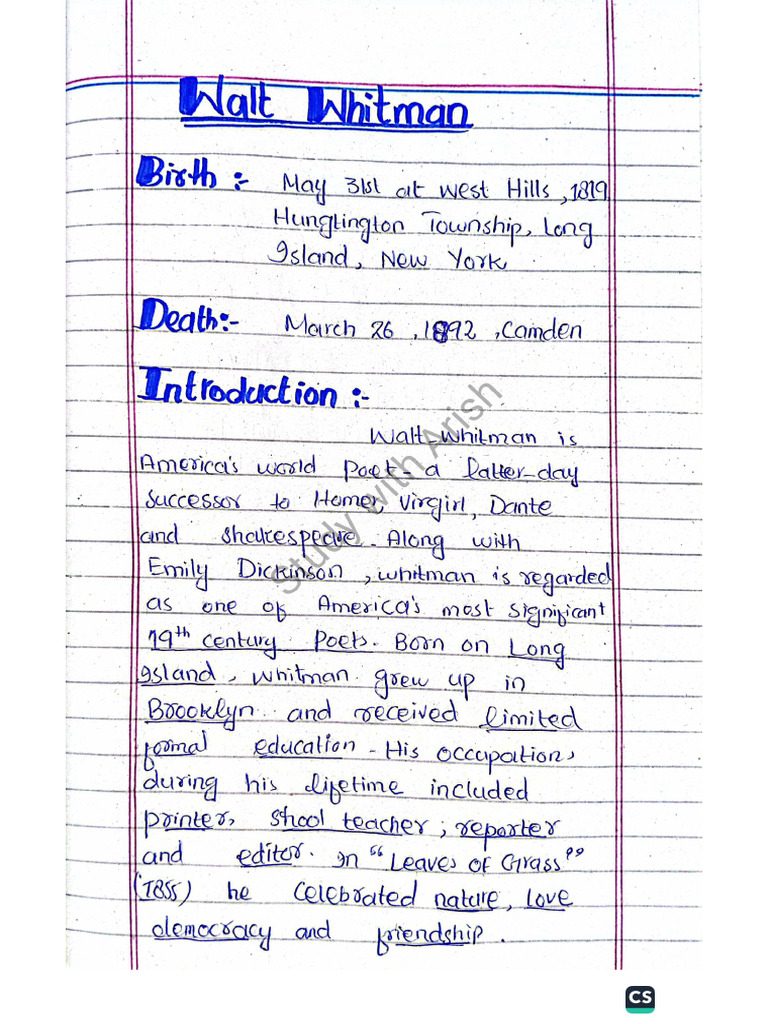 Walt Whitman
Birth :- May 31st at West Hills, 1819
Hunglington Township, Long
Island, New York
Death:- March 26, 1892, Camden
Introduction :-
Walt Whitman is
America's world Poet - a latter-day
successor to Homer, Virgirl, Dante
and Shakespeare. Along with
Emily Dickinson, whitman is regarded
as one of America's most significant
19th century Poets. Born on Long
Island, whitman grew up in
Brooklyn and received limited
formal education - His occupations
during his lifetime included
printer, Shool teacher, reporter
and editor. In "Leaves of Grass"
(1855) he celebrated nature, love
democracy and friendship.
Study with Arish
CS